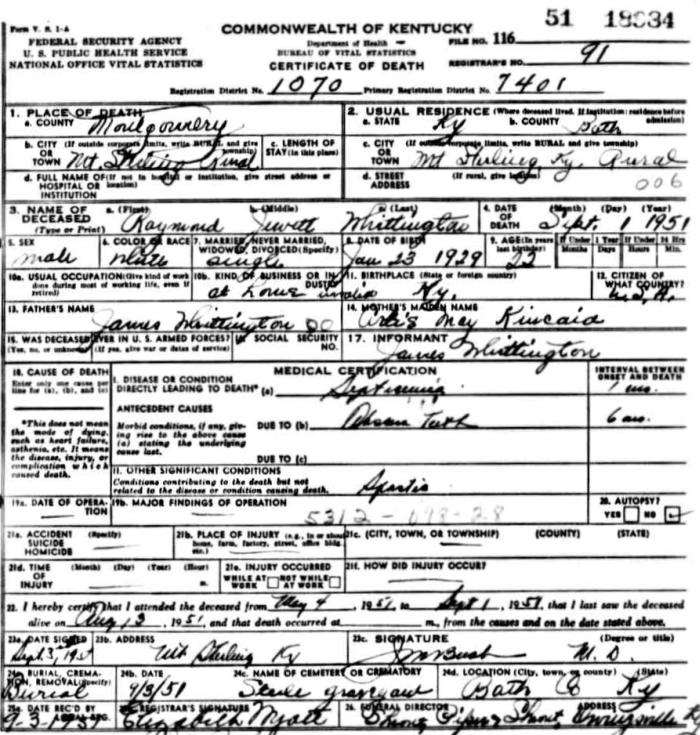 Form V. S. 1-A
FEDERAL SECURITY AGENCY
U. S. PUBLIC HEALTH SERVICE
NATIONAL OFFICE VITAL STATISTICS
COMMONWEALTH OF KENTUCKY
Department of Health
BUREAU OF VITAL STATISTICS
CERTIFICATE OF DEATH
51 18634
FILE NO. 116
REGISTRAR'S NO. 91
Registration District No. 1070 Primary Registration District No. 7401
1. PLACE OF DEATH
a. COUNTY Montgomery
2. USUAL RESIDENCE (Where deceased lived. If institution: residence before admission)
a. STATE Ky b. COUNTY Bath
b. CITY (If outside corporate limits, write RURAL and give township) OR TOWN Mt. Sterling Rural
c. LENGTH OF STAY (in this place)
c. CITY (If outside corporate limits, write RURAL and give township) OR TOWN Mt Sterling Ky. Rural
d. FULL NAME OF (If not in hospital or institution, give street address or location) HOSPITAL OR INSTITUTION
d. STREET ADDRESS (If rural, give location)
006
3. NAME OF DECEASED (Type or Print)
a. (First) Raymond b. (Middle) Jewett c. (Last) Whittington
4. DATE OF DEATH (Month) (Day) (Year) Sept. 1 1951
5. SEX male
6. COLOR OR RACE White
7. MARRIED, NEVER MARRIED, WIDOWED, DIVORCED (Specify) single
8. DATE OF BIRTH Jan 23 1929
9. AGE (In years last birthday) 22
If Under 1 Year Months Days
If Under 24 Hrs Hours Min.
10a. USUAL OCCUPATION (Give kind of work done during most of working life, even if retired)
10b. KIND OF BUSINESS OR INDUSTRY
at home invalid
11. BIRTHPLACE (State or foreign country) Ky.
12. CITIZEN OF WHAT COUNTRY? U.S.A.
13. FATHER'S NAME James Whittington
14. MOTHER'S MAIDEN NAME Artis May Kincaid
15. WAS DECEASED EVER IN U. S. ARMED FORCES? (Yes, no, or unknown) (If yes, give war or dates of service)
16. SOCIAL SECURITY NO.
17. INFORMANT James Whittington
18. CAUSE OF DEATH
Enter only one cause per line for (a), (b), and (c)
*This does not mean the mode of dying, such as heart failure, asthenia, etc. It means the disease, injury, or complication which caused death.
MEDICAL CERTIFICATION
INTERVAL BETWEEN ONSET AND DEATH
I. DISEASE OR CONDITION DIRECTLY LEADING TO DEATH* (a) Septicemia 1 mo.
ANTECEDENT CAUSES
Morbid conditions, if any, giving rise to the above cause (a) stating the underlying cause last.
DUE TO (b) Abscess Teeth 6 mo.
DUE TO (c)
II. OTHER SIGNIFICANT CONDITIONS
Conditions contributing to the death but not related to the disease or condition causing death.
19a. DATE OF OPERATION
19b. MAJOR FINDINGS OF OPERATION
5312-098-28
20. AUTOPSY? YES NO
21a. ACCIDENT SUICIDE HOMICIDE (Specify)
21b. PLACE OF INJURY (e.g., in or about home, farm, factory, street, office bldg., etc.)
21c. (CITY, TOWN, OR TOWNSHIP) (COUNTY) (STATE)
21d. TIME OF INJURY (Month) (Day) (Year) (Hour) m.
21e. INJURY OCCURRED WHILE AT WORK NOT WHILE AT WORK
21f. HOW DID INJURY OCCUR?
22. I hereby certify that I attended the deceased from May 4, 1951, to Sept 1, 1951, that I last saw the deceased
alive on Aug 13, 1951, and that death occurred at m., from the causes and on the date stated above.
23a. DATE SIGNED Sept. 3, 1951
23b. ADDRESS Mt Sterling Ky
23c. SIGNATURE (Degree or title) Bush M. D.
24a. BURIAL, CREMATION, REMOVAL (Specify) Burial
24b. DATE 9/3/51
24c. NAME OF CEMETERY OR CREMATORY
24d. LOCATION (City, town, or county) (State) Bath Co Ky
25a. DATE REC'D BY LOCAL REG. 9-3-1951
25b. REGISTRAR'S SIGNATURE Elizabeth Myatt
26. FUNERAL DIRECTOR ADDRESS Owingsville Ky